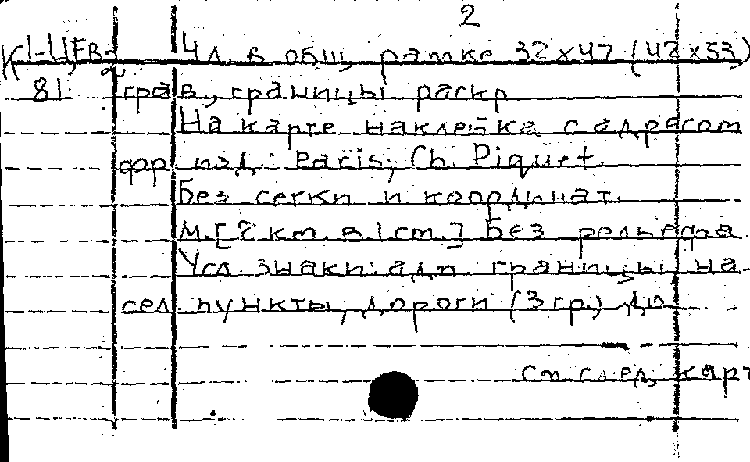 2
К 1-ЦЕВ- 4 л. в общ. рамке 32х47 (42х53)
81 грав., границы раскр.
На карте наклейка с адресом
фр изд: Paris, Ch. Piquet.
Без сетки и координат.
М. [2 км. в 1 см.] Без рельефа
Усл. знаки: адм границы, на
сел. пункты, дороги (3 гр.) До
См след. карт